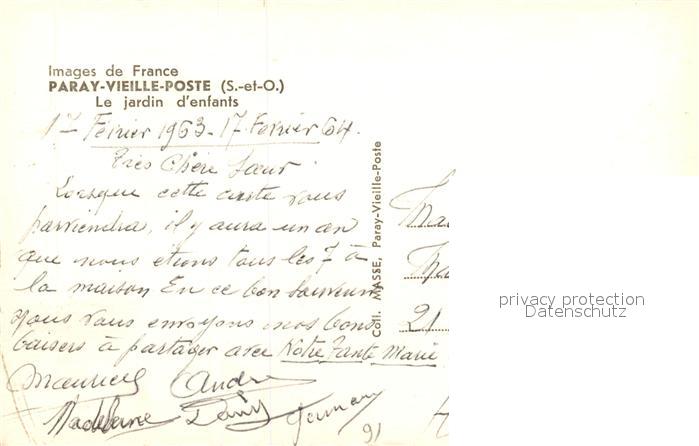 Images de France
PARAY-VIEILLE-POSTE (S.-et-O.)
Le jardin d'enfants
17 Février 1963 - 17 Février 64.
Très Chère Sœur.
Lorsque cette carte vous
parviendra, il y aura un an
que nous étions tous les 7 à
la maison En ce bon souvenir
nous vous envoyons nos bons
baisers à partager avec Notre Tante Marie
Maurice André
Madeleine
91
Coll. MASSE, Paray-Vieille-Poste
21
privacy protection
Datenschutz